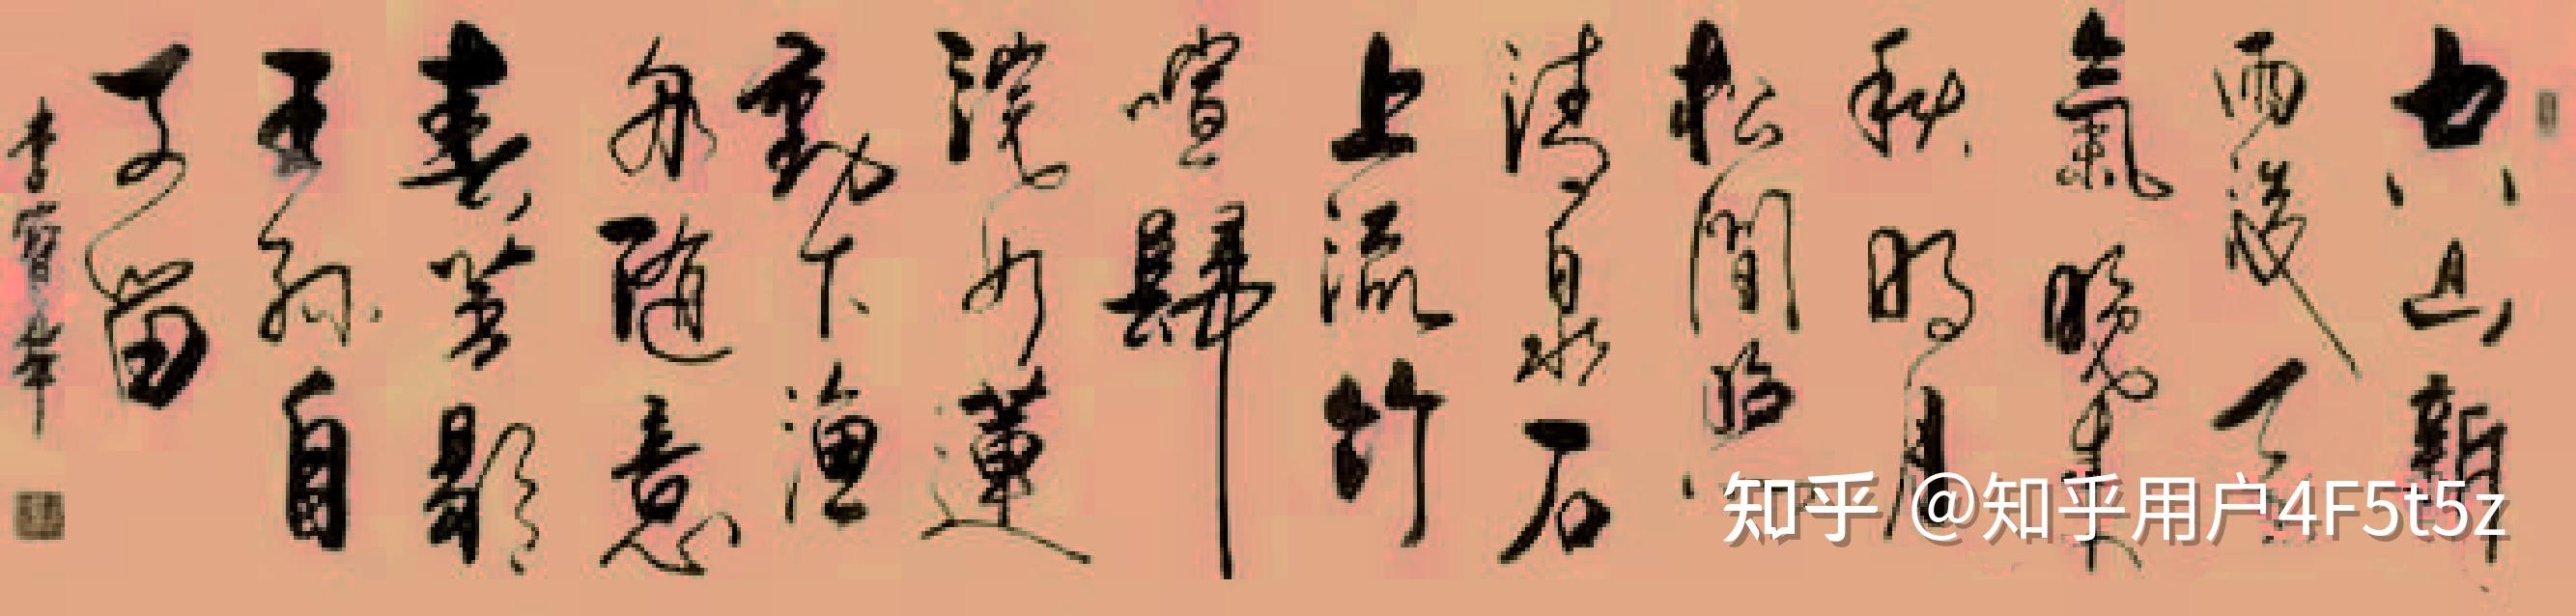 空山新
雨後天
氣晚來
秋明月
松間照
清泉石
上流竹
喧歸
浣女蓮
動下漁
舟隨意
春芳歇
王孫自
可留
李
知乎 @知乎用户4F5t5z